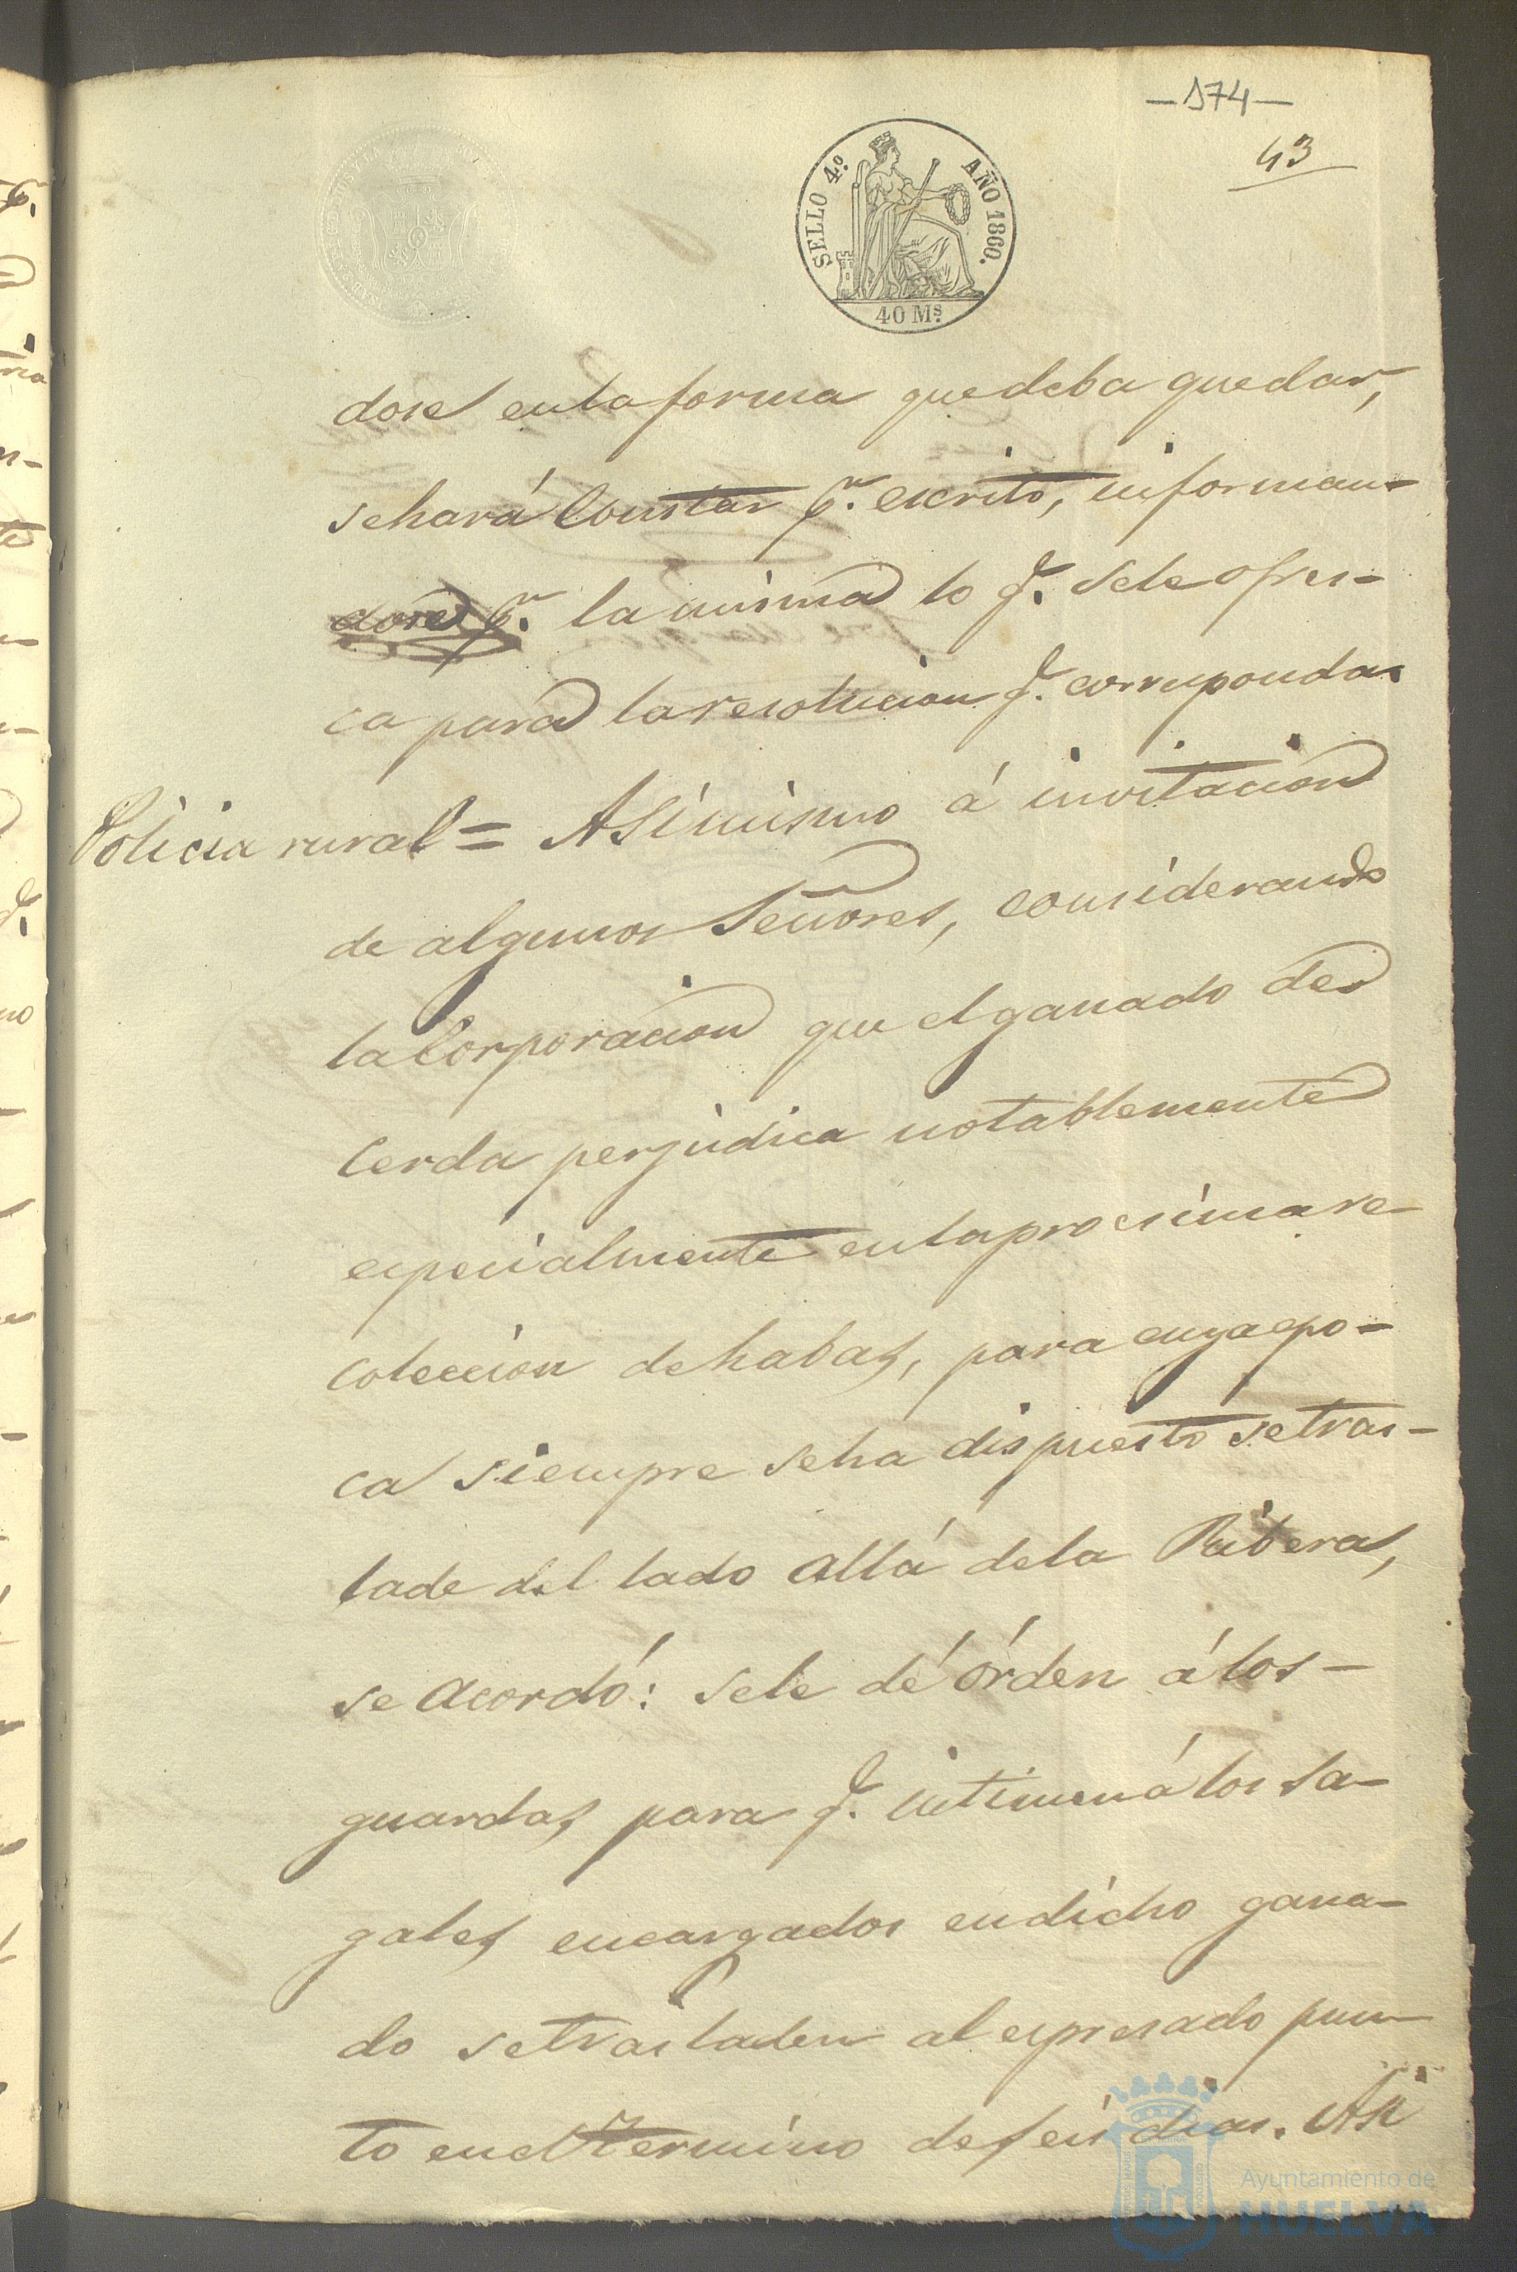 —174—
43
SELLO 4.º AÑO 1860.
40 Ms.
dose en la forma que deba quedar,
se hará Constar pr. escrito, informan-
dose pr. la misma lo q. se le ofres-
ca para la resolucion q. corresponda.
Policia rural = Asimismo á invitacion
de algunos Señores, considerando
la Corporacion que el ganado de
Cerda perjudica notablemente
especialmente en la procsima re-
coleccion de habas, para cuya epo-
ca siempre se ha dispuesto se tras-
lade del lado allá de la Ribera,
se acordó: se le dé órden á los-
guardas para q. intimen á los za-
gales encargados en dicho gana-
do se trasladen al espresado pun-
to en el término de seis dias. Asi
Ayuntamiento de
HUELVA